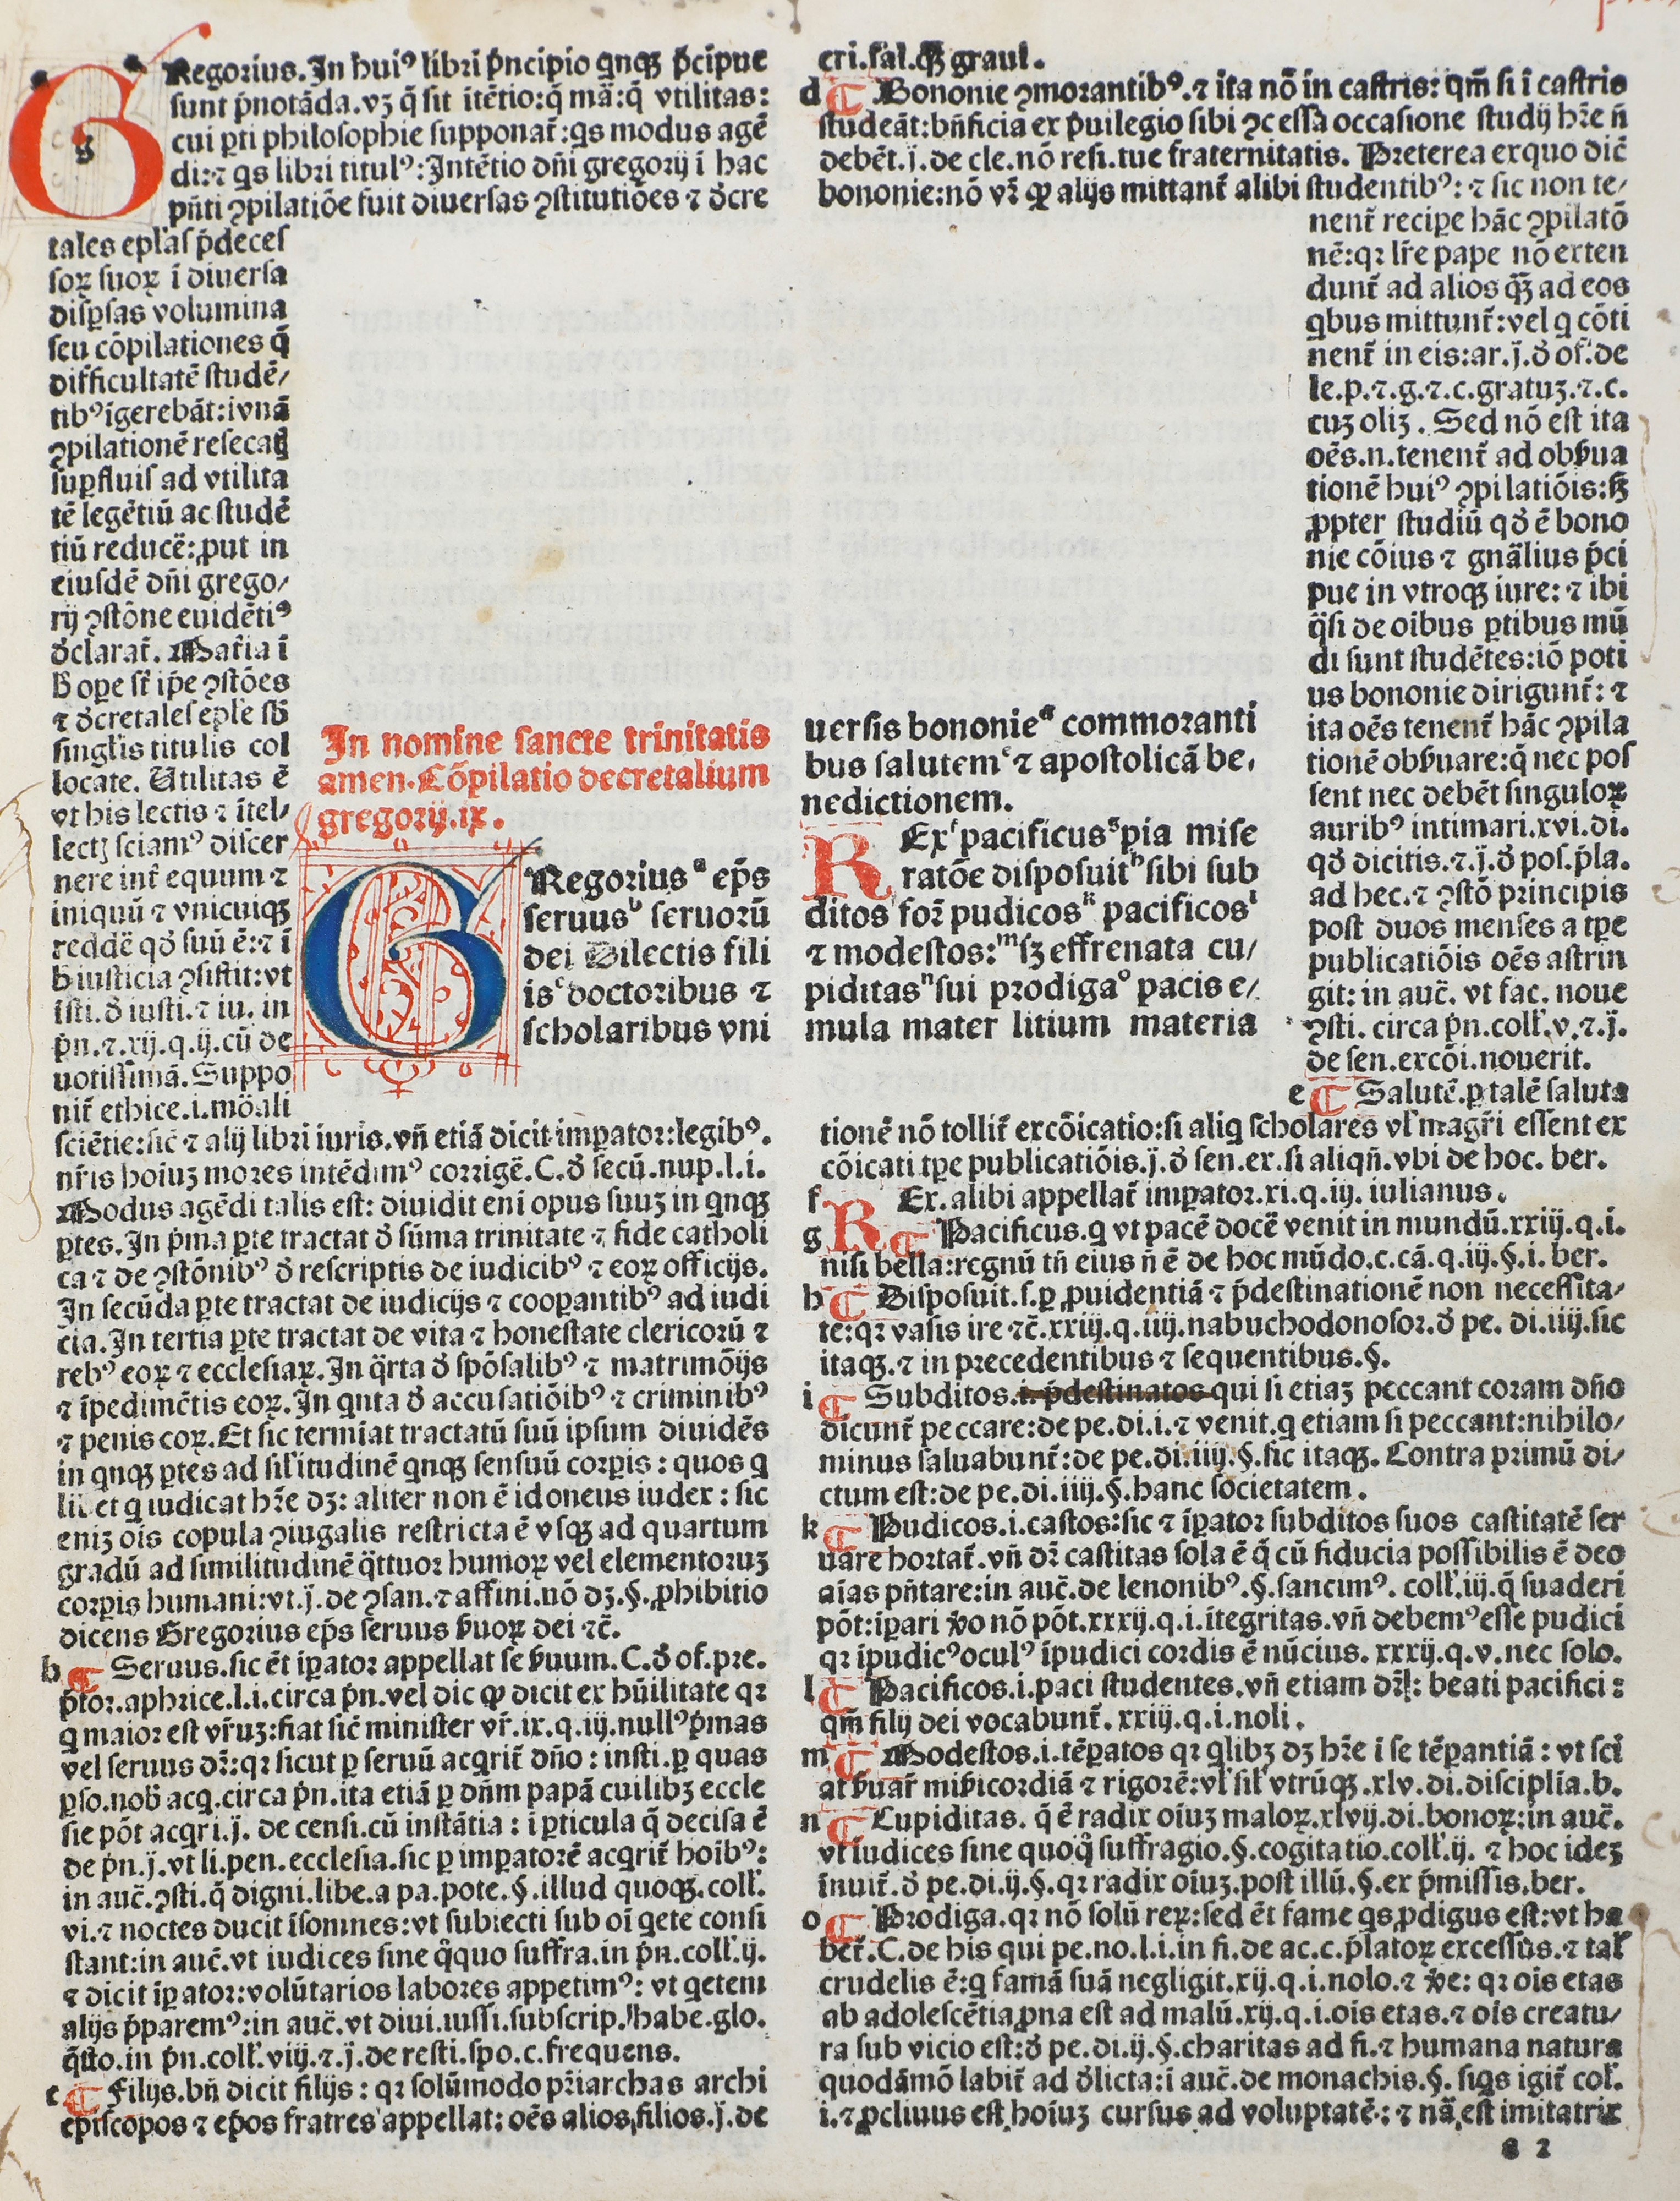 Regorius. In hui⁹ libri p̄ncipio qnqꝫ p̄cipue
sunt p̄notāda. vꝫ q̄ sit itētio: q̄ mā: q̄ vtilitas:
cui ꝑti philosophie supponat̄: qs modus agē
di: ⁊ qs libri titul⁹: Intētio dn̄i gregorij ī hac
pn̄ti ꝯpilatiōe fuit diuersas ꝯstitutiōes ⁊ d̄cre
tales epl̄as p̄deces
soꝝ suoꝝ ī diuersa
disꝑsas volumina
seu cōpilationes q̄
difficultatē studē/
tib⁹ īgerebāt: i vnā
ꝯpilationē resecatꝭ
suꝑfluis ad vtilita
tē legētiū ac studē
tiū reducē̄: ꝓut in
eiusdē dn̄i grego/
rij ꝯstōne euidēti⁹
d̄clarat̄. Mat̄ia ī
h̄ oꝑe st̄ ip̄e ꝯstōes
⁊ d̄cretales epl̄e sb̄
singl̄is titulis col
locate. Utilitas ē
vt his lectis ⁊ ītel/
lectꝭ sciam⁹ discer
nere int̄ equum ⁊
iniquū ⁊ vnicuiqꝫ
reddē̄ qd̄ suū ē: ⁊ ī
h̄ iusticia ꝯsistit: vt
īsti. d̄ iusti. ⁊ iu. in
p̄n. ⁊ .xij. q. ij. cū de
uotissimā. Suppo
nit̄ ethice. i. mōali
sciētie: sic̄ ⁊ alij libri iuris. vn̄ etiā dicit imꝑator: legib⁹.
nr̄is hoiuꝫ mores intēdim⁹ corrigē̄. C. d̄ secū. nup. l. i.
Modus agēdi talis est: diuidit enī opus suuꝫ in qnqꝫ
ꝑtes. In p̄ma ꝑte tractat d̄ sūma trinitate ⁊ fide catholi
ca ⁊ de ꝯstōnib⁹ d̄ rescriptis de iudicib⁹ ⁊ eoꝝ officijs.
In secūda ꝑte tractat de iudicijs ⁊ cooꝑantib⁹ ad iudi
cia. In tertia ꝑte tractat de vita ⁊ honestate clericorū ⁊
reb⁹ eoꝝ ⁊ ecclesiaꝝ. In q̄rta d̄ spōsalib⁹ ⁊ matrimōijs
⁊ īpedimētis eoꝝ. In qnta d̄ accusatiōib⁹ ⁊ criminib⁹
⁊ penis eoꝝ. Et sic termīat tractatū suū ipsum diuidēs
in qnqꝫ ꝑtes ad sil̄itudinē qnqꝫ sensuū corꝑis: quos q
li et q iudicat hr̄e dꝫ: aliter non ē idoneus iudex: sic
eniꝫ ois copula ꝯiugalis restricta ē vsqꝫ ad quartum
gradū ad similitudinē q̄ttuor humoꝝ vel elementoruꝫ
corꝑis humani: vt. j. de ꝯsan. ⁊ affini. nō dꝫ. §. ꝓhibitio
dicens Gregorius ep̄s seruus ẜuoꝝ dei ⁊c̄.
b ¶ Seruus. sic ēt iꝑator appellat se ẜuum. C. d̄ of. pre.
p̄tor. aphrice. l. i. circa p̄n. vel dic ꝙ dicit ex hūilitate qꝛ
q maior est vr̄uꝫ: fiat sic̄ minister vr̄. ix. q. iij. null⁹ p̄mas
vel seruus dꝛ: qꝛ sicut ꝑ seruū acqrit̄ dn̄o: insti. ꝑ quas
ꝑso. nob̄ acq. circa p̄n. ita etiā ꝑ dn̄m papā cuilibꝫ eccle
sie pōt acqri. j. de censi. cū instātia: i ꝑticula q̄ decisa ē
de p̄n. j. vt li. pen. ecclesia. sic ꝑ imꝑatorē acqrit̄ hoib⁹:
in auc̄. ꝯsti. q̄ digni. libe. a pa. pote. §. illud quoqꝫ. coll̄.
vi. ⁊ noctes ducit īsomnes: vt subiecti sub oī qete consi
stant: in auc̄. vt iudices sine q̄quo suffra. in p̄n. coll̄. ij.
⁊ dicit īꝑator: volūtarios labores appetim⁹: vt qetem
alijs p̄parem⁹: in auc̄. vt diui. iussi. subscrip. habe. glo.
q̄tto. in p̄n. coll̄. viij. ⁊. j. de resti. spo. c. frequens.
c ¶ Filijs. bn̄ dicit filijs: qꝛ solūmodo pr̄iarchas archi
episcopos ⁊ ep̄os fratres appellat: oēs alios, filios. j. de
In nomine sancte trinitatis
amen. Cōpilatio decretalium
gregorij. ix.
Regorius ᵃ ep̄s
seruus ᵇ seruorū
dei Dilectis fili
is ᶜ doctoribus ⁊
scholaribus vni
uersis bononie ᵈ commoranti
bus salutem ᵉ ⁊ apostolicā be,
nedictionem.
REx ᶠ pacificus ᵍ pia mise
ratōe disposuit ʰ sibi sub
ditos ⁱ foꝛ̄ pudicos ᵏ pacificos ˡ
⁊ modestos: ᵐ sꝫ effrenata cu/
piditas ⁿ sui prodiga ᵒ pacis e/
mula mater litium materia
cri. fal. qꝫ graui.
d ¶ Bononie ꝯmorantib⁹. ⁊ ita nō in castris: qm̄ si ī castris
studeāt: bn̄ficia ex p̄uilegio sibi ꝯcessa occasione studij hr̄e n̄
debēt. j. de cle. nō resi. tue fraternitatis. Preterea exquo dic̄
bononie: nō vꝛ ꝙ alijs mittant̄ alibi studentib⁹: ⁊ sic non te/
nent̄ recipe hāc ꝯpilatō
nē: qꝛ lr̄e pape nō exten
dunt̄ ad alios qꝫ ad eos
qbus mittunt̄: vel q cōti
nent̄ in eis: ar. j. d̄ of. de
le. p. ⁊. g. ⁊. c. gratuꝫ. ⁊. c.
cuꝫ oliꝫ. Sed nō est ita
oēs. n. tenent̄ ad obẜua
tionē hui⁹ ꝯpilatiōis: sꝫ
ꝓpter studiū qd̄ ē bono
nie cōius ⁊ gnālius p̄ci
pue in vtroqꝫ iure: ⁊ ibi
q̄si de oibus ꝑtibus mū
di sunt studētes: iō poti
us bononie dirigunt̄: ⁊
ita oēs tenent̄ hāc ꝯpila
tionē obẜuare: q̄ nec pos
sent nec debēt singuloꝝ
aurib⁹ intimari. xvi. di.
qd̄ dicitis. ⁊. j. d̄ pos. p̄la.
ad hec. ⁊ ꝯstō principis
post duos menses a tꝑe
publicatiōis oēs astrin
git: in auc̄. vt fac. noue
ꝯsti. circa p̄n. coll̄. v. ⁊. j.
de sen. excōi. nouerit.
e ¶ Salutē. ꝑ talē saluta
tionē nō tollit̄ excōicatio: si aliq scholares vl̄ magr̄i essent ex
cōicati tꝑe publicatiōis. j. d̄ sen. ex. si aliqn̄. vbi de hoc. ber.
f REx. alibi appellat̄ imꝑator. xi. q. iij. iulianus.
g ¶ Pacificus. q vt pacē docē̄ venit in mundū. xxiij. q. i.
nisi bella: regnū tn̄ eius n̄ ē de hoc mūdo. c. cā. q. iij. §. i. ber.
h ¶ Disposuit. s. ꝑ ꝓuidentiā ⁊ p̄destinationē non necessita/
te: qꝛ vasis ire ⁊c̄. xxiij. q. iiij. nabuchodonosor. d̄ pe. di. iiij. sic
itaqꝫ. ⁊ in precedentibus ⁊ sequentibus. §.
i ¶ Subditos. i. p̄destinatos qui si etiaꝫ peccant coram dn̄o
dicunt̄ peccare: de pe. di. i. ⁊ venit. q etiam si peccant: nihilo/
minus saluabunt̄: de pe. di. iiij. §. sic itaqꝫ. Contra primū di/
ctum est: de pe. di. iiij. §. hanc societatem.
k ¶ Pudicos. i. castos: sic ⁊ īꝑator subditos suos castitatē ser
uare hortat̄. vn̄ dꝛ castitas sola ē q̄ cū fiducia possibilis ē deo
aīas pn̄tare: in auc̄. de lenonib⁹. §. sancim⁹. coll̄. iij. q̄ suaderi
pōt: iꝑari v̄o nō pōt. xxxij. q. i. itegritas. vn̄ debem⁹ esse pudici
qꝛ ipudic⁹ ocul⁹ ipudici cordis ē nūcius. xxxij. q. v. nec solo.
l ¶ Pacificos. i. paci studentes. vn̄ etiam dꝛ: beati pacifici:
qm̄ filij dei vocabunt̄. xxiij. q. i. noli.
m ¶ Modestos. i. tēꝑatos qꝛ qlibꝫ dꝫ hr̄e ī se tēꝑantiā: vt sci
at ẜuar̄ miẜicordiā ⁊ rigorē: vl̄ sil̄ vtrūqꝫ. xlv. di. disciplīa. b.
n ¶ Cupiditas. q̄ ē radix oiuꝫ maloꝝ. xlvij. di. bonoꝝ: in auc̄.
vt iudices sine quoq̄ suffragio. §. cogitatio. coll̄. ij. ⁊ hoc ideꝫ
īnuit̄. d̄ pe. di. ij. §. qꝛ radix oiuꝫ. post illū. §. ex p̄missis. ber.
o ¶ Prodiga. qꝛ nō solū reꝝ: sed ēt fame qs ꝓdigus est: vt ha
bet̄. C. de his qui pe. no. l. i. in fi. de ac. c. p̄latoꝝ excessus. ⁊ tal̄
crudelis ē: q famā suā negligit. xij. q. i. nolo. ⁊ v̄e: qꝛ ois etas
ab adolescētia ꝓna est ad malū. xij. q. i. ois etas. ⁊ ois creatu/
ra sub vicio est: d̄ pe. di. ij. §. charitas ad fi. ⁊ humana natura
quodāmō labit̄ ad d̄licta: i auc̄. de monachis. §. siqs igit̄ col̄.
i. ⁊ ꝓcliuus est hoiuꝫ cursus ad voluptatē: ⁊ nā est imitatrix
a 2